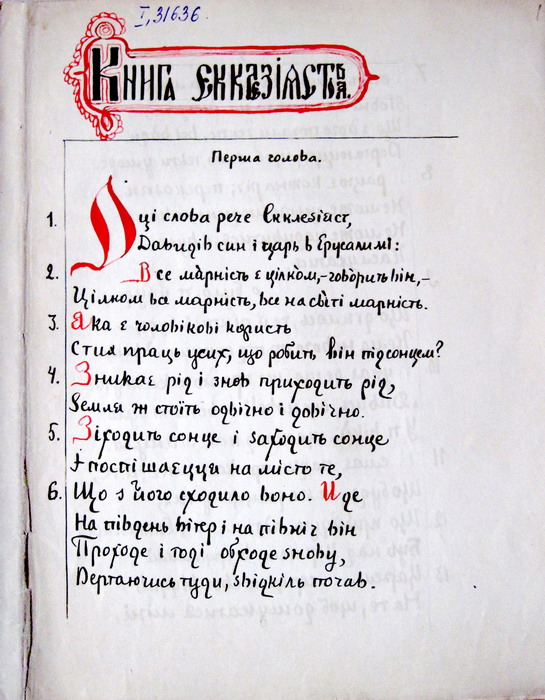 I, 31636
1
Книга Екклезіяста.
Перша голова.
1. Ці слова рече Екклезіяст,
Давидів син і царь в Ерусалимі:
2. Все марність є цілком,-говорить він,-
Цілком все марність, все на світі марність.
3. Яка є чоловікові користь
С тих праць усіх, що робить він під сонцем?
4. Зникає рід і знов приходить рід,
Земля ж стоїть одвічно і довічно.
5. Зіходить сонце і заходить сонце
І поспішаєцця на місто те,
6. Що з його сходило воно. Иде
На південь вітер і на північ він
Проходе і тоді обходе знову,
Вертаючись туди, звідкіль почав.